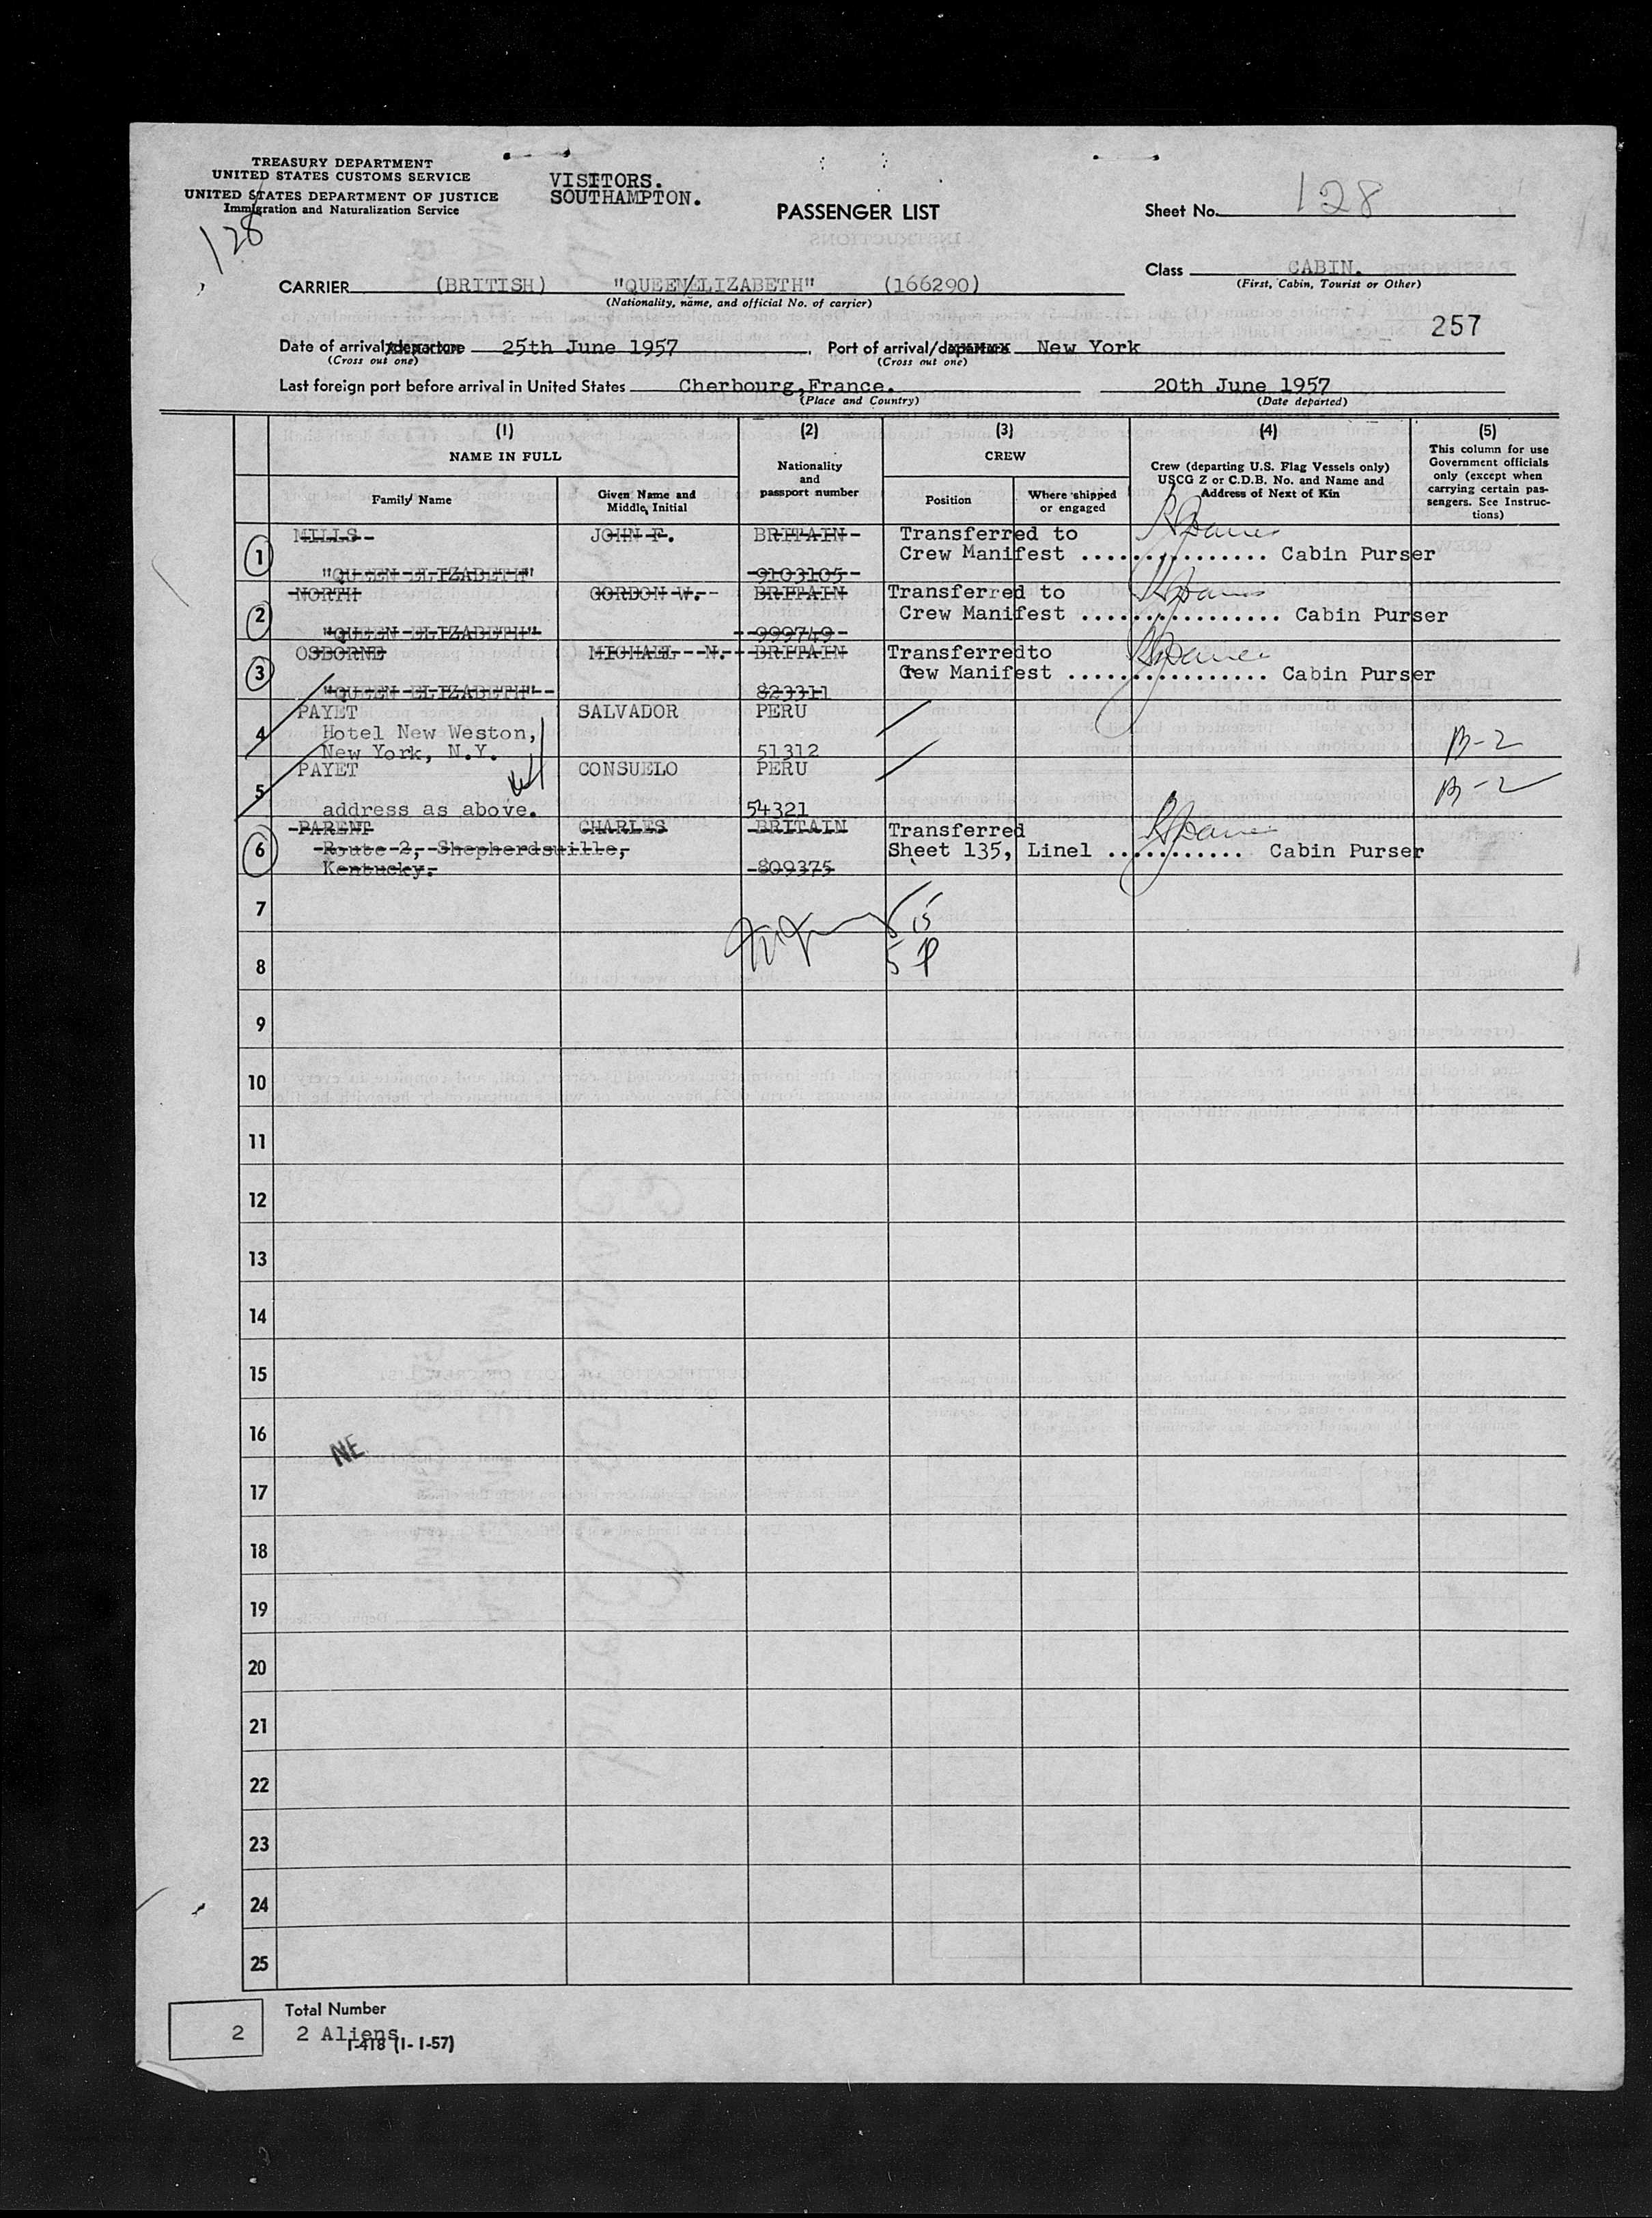 TREASURY DEPARTMENT
UNITED STATES CUSTOMS SERVICE
UNITED STATES DEPARTMENT OF JUSTICE
Immigration and Naturalization Service
128
VISITORS.
SOUTHAMPTON.
PASSENGER LIST
Sheet No. 128
Class CABIN.
(First, Cabin, Tourist or Other)
CARRIER (BRITISH) "QUEEN ELIZABETH" (166290)
(Nationality, name, and official No. of carrier)
257
Date of arrival/departure 25th June 1957, Port of arrival/departure New York
(Cross out one) (Cross out one)
Last foreign port before arrival in United States Cherbourg, France. 20th June 1957
(Place and Country) (Date departed)
(1) (2) (3) (4) (5)
NAME IN FULL
Family Name
Given Name and Middle Initial
Nationality and passport number
CREW
Position
Where shipped or engaged
Crew (departing U.S. Flag Vessels only) USCG Z or C.D.B. No. and Name and Address of Next of Kin
This column for use Government officials only (except when carrying certain passengers. See Instructions)
1 MILLS JOHN F. BRITAIN Transferred to
Crew Manifest ............... Cabin Purser
"QUEEN ELIZABETH" 9103105
2 NORTH GORDON W. BRITAIN Transferred to
Crew Manifest ................ Cabin Purser
"QUEEN ELIZABETH" 999749
3 OSBORNE MICHAEL N. BRITAIN Transferredto
Crew Manifest ................ Cabin Purser
"QUEEN ELIZABETH" 823311
4 PAYET SALVADOR PERU
Hotel New Weston,
New York, N.Y. 51312 B-2
5 PAYET CONSUELO PERU B-2
address as above. 54321
6 PARENT CHARLES BRITAIN Transferred
Route 2, Shepherdsuille, Sheet 135, Line1 ........... Cabin Purser
Kentucky. 809375
7
8
9
10
11
12
13
14
15
16
NE
17
18
19
20
21
22
23
24
25
2
Total Number
2 Aliens
I-418 (1-1-57)